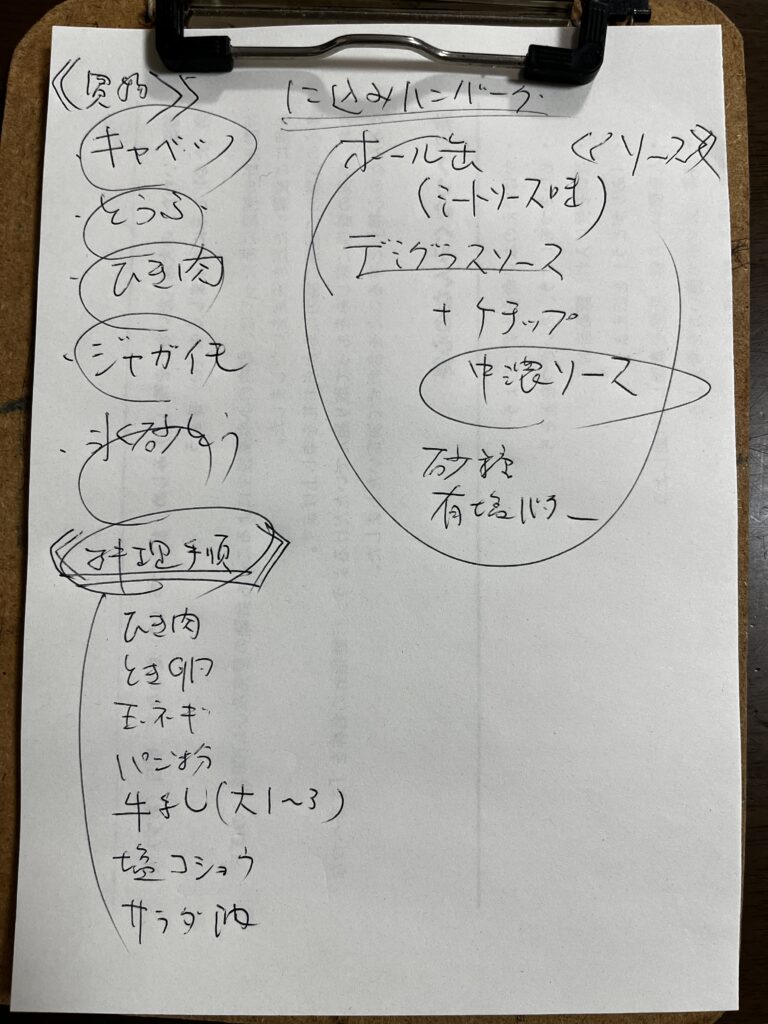 《買物》
・キャベツ
・とうふ
・ひき肉
・ジャガイモ
・氷砂とう
に込みハンバーグ
ホール缶
(ミートソース味)
デミグラスソース
+ケチャップ
中濃ソース
砂糖
有塩バター
《ソース》
《料理手順》
ひき肉
とき卵
玉ネギ
パン粉
牛乳(大1〜3)
塩コショウ
サラダ油